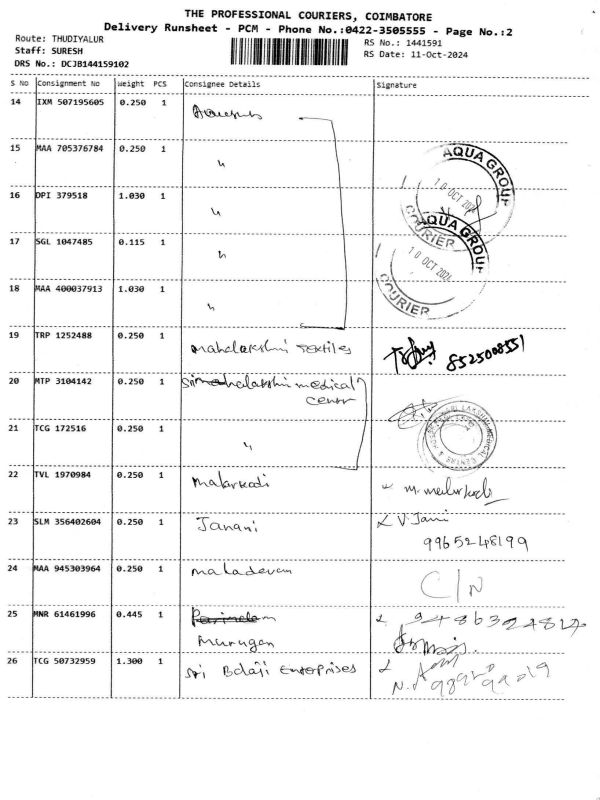 THE PROFESSIONAL COURIERS, COIMBATORE
Delivery Runsheet - PCM - Phone No.:0422-3505555 - Page No.:2
Route: THUDIYALUR
Staff: SURESH
DRS No.: DCJB144159102
RS No.: 1441591
RS Date: 11-Oct-2024
S No Consignment No Weight PCS Consignee Details Signature
14 IXM 507195605 0.250 1
15 MAA 705376784 0.250 1 "
16 DPI 379518 1.030 1 "
17 SGL 1047485 0.115 1 "
18 MAA 400037913 1.030 1 "
AQUA GROUP
10 OCT 2024
COURIER
AQUA GROUP
10 OCT 2024
COURIER
19 TRP 1252488 0.250 1 mahalakshmi textiles 8525008551
20 MTP 3104142 0.250 1 Sri mahalakshmi medical
center
21 TCG 172516 0.250 1 "
22 TVL 1970984 0.250 1 malarkodi m. malarkodi
23 SLM 356402604 0.250 1 Janani V. Jani
9965248199
24 MAA 945303964 0.250 1 mahadevan C/N
25 MNR 61461996 0.445 1 Parimalam 9486324817
Murugan
26 TCG 50732959 1.300 1 Sri Balaji Enterprises